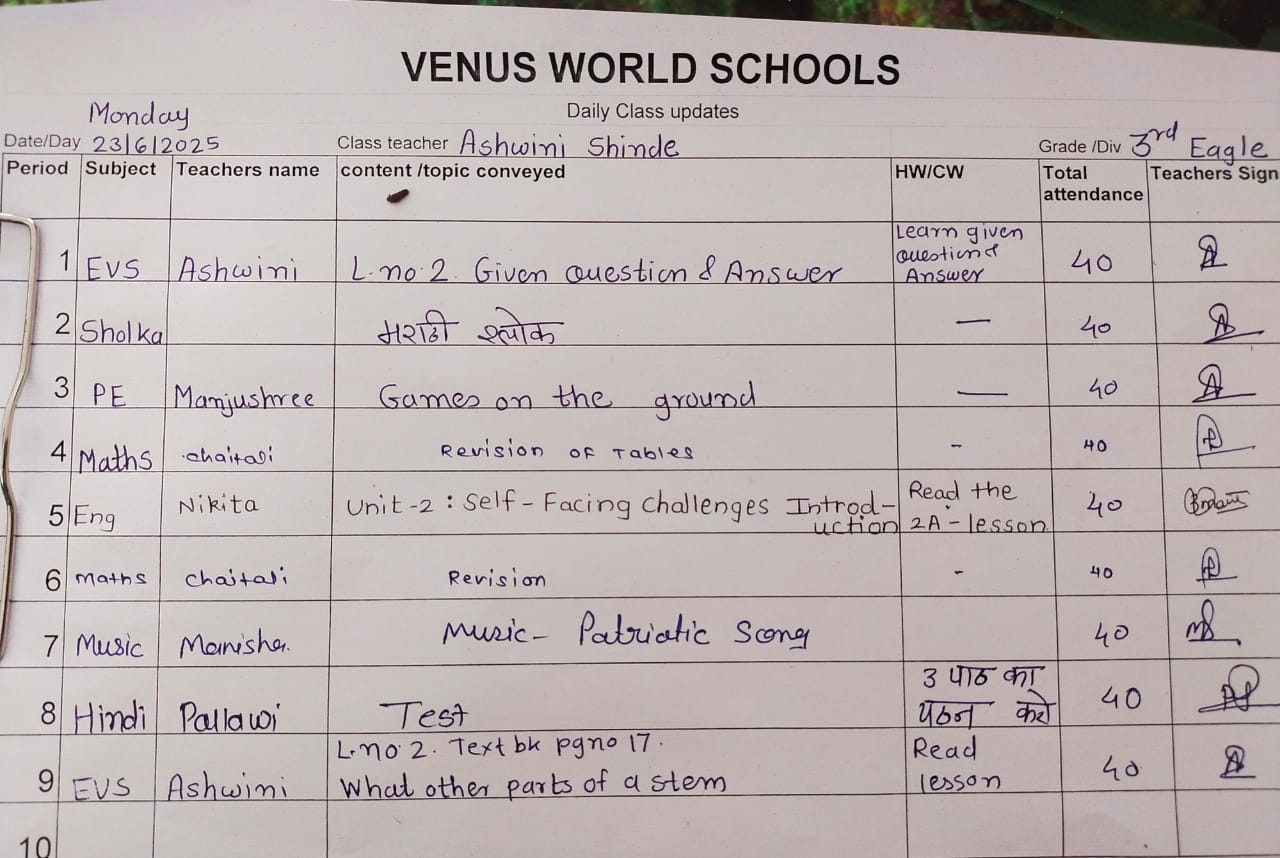 VENUS WORLD SCHOOLS
Daily Class updates
Monday
Date/Day 23/6/2025 Class teacher Ashwini Shinde Grade /Div 3rd Eagle
Period Subject Teachers name content /topic conveyed HW/CW Total attendance Teachers Sign
1 EVS Ashwini L.no.2. Given question & Answer Learn given question & Answer 40
2 Sholka मराठी श्लोक — 40
3 PE Manjushree Games on the ground — 40
4 Maths chaitali Revision of Tables - 40
5 Eng Nikita Unit-2 : Self-Facing Challenges Introd-uction Read the 2A-lesson 40
6 maths chaitali Revision - 40
7 Music Manisha. Music- Patriatic Song 40
8 Hindi Pallawi Test 3 पाठ का पठन करो 40
9 EVS Ashwini L.no.2. Text bk pgno 17. What other parts of a stem Read lesson 40
10